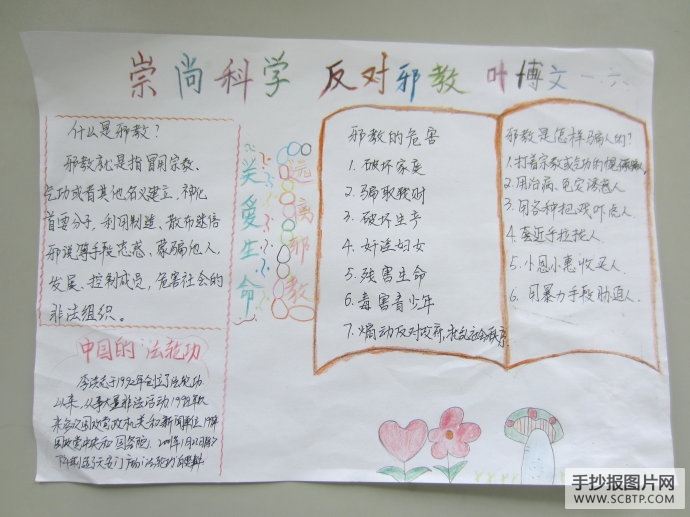 崇尚科学 反对邪教 叶博文 一六
什么是邪教？
邪教就是指冒用宗教、
气功或者其他名义建立，神化
首要分子，利用制造、散布迷信
邪说等手段蛊惑、蒙骗他人，
发展、控制成员，危害社会的
非法组织。
关爱生命
远离邪教
邪教的危害
1. 破坏家庭
2. 骗取钱财
3. 破坏生产
4. 奸淫妇女
5. 残害生命
6. 毒害青少年
7. 煽动反对政府，扰乱社会秩序
邪教是怎样骗人的？
1. 打着宗教或气功的幌
2. 用治病、免灾诱惑人
3. 用各种把戏吓唬人
4. 套近乎拉拢人
5. 小恩小惠收买人
6. 用暴力手段胁迫人
中国的"法轮功
于1992年创立了法轮功
以来，从事大量非法活动
天安门广场
手抄报图片网
WWW.SCBTP.COM